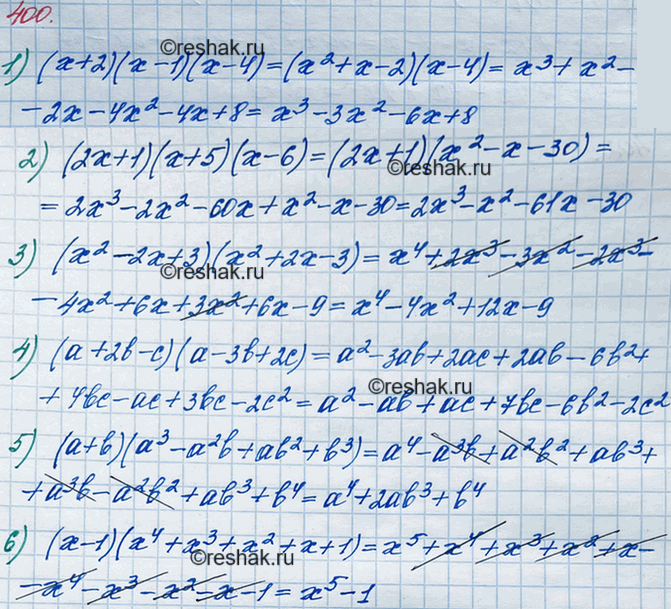 400.
©reshak.ru
1) (x+2)(x-1)(x-4)=(x²+x-2)(x-4)=x³+x²-
-2x-4x²-4x+8=x³-3x²-6x+8
2) (2x+1)(x+5)(x-6)=(2x+1)(x²-x-30)=
©reshak.ru
=2x³-2x²-60x+x²-x-30=2x³-x²-61x-30
3) (x²-2x+3)(x²+2x-3)=x⁴+2x³-3x²-2x³-
©reshak.ru
-4x²+6x+3x²+6x-9=x⁴-4x²+12x-9
4) (a+2b-c)(a-3b+2c)=a²-3ab+2ac+2ab-6b²+
©reshak.ru
+4bc-ac+3bc-2c²=a²-ab+ac+7bc-6b²-2c²
5) (a+b)(a³-a²b+ab²+b³)=a⁴-a³b+a²b²+ab³+
+a³b-a²b²+ab³+b⁴=a⁴+2ab³+b⁴
6) (x-1)(x⁴+x³+x²+x+1)=x⁵+x⁴+x³+x²+x-
©reshak.ru
-x⁴-x³-x²-x-1=x⁵-1